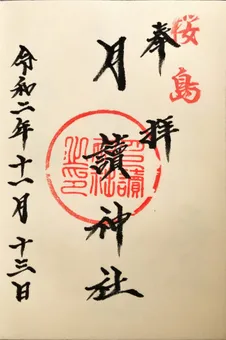 桜島
奉拝
月讀神社
令和二年十一月十三日